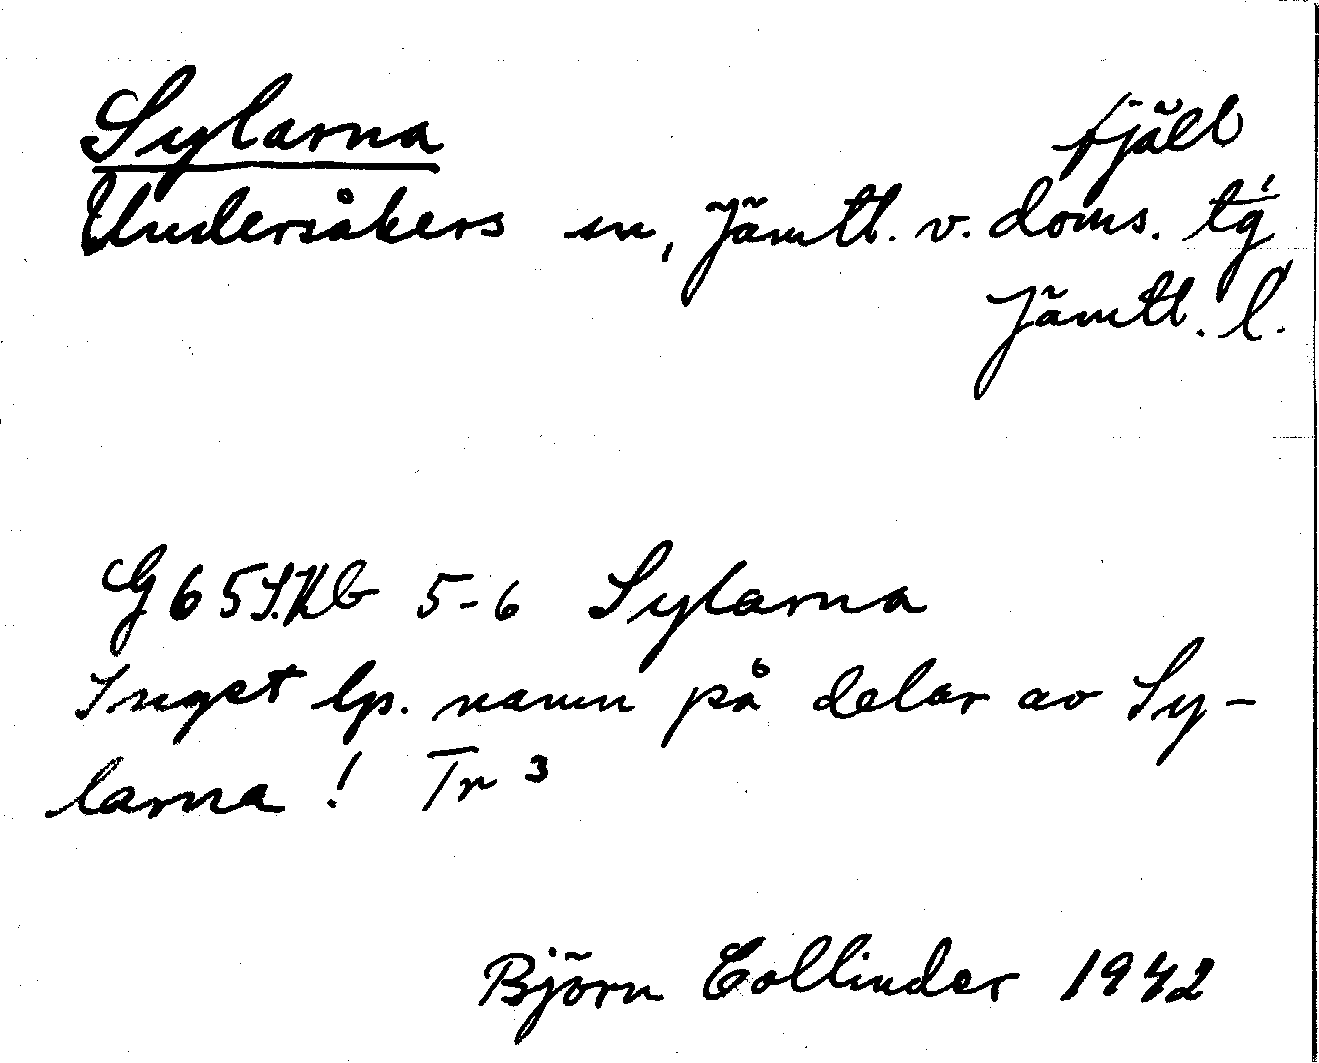 Sylarna fjäll
Undersåkers sn, Jämtl. v. doms. tg
Jämtl. l.
G 65 S.Kb 5-6 Sylarna
Inget lp. namn på delar av Sy-
larna! Tr 3
Björn Collinder 1942